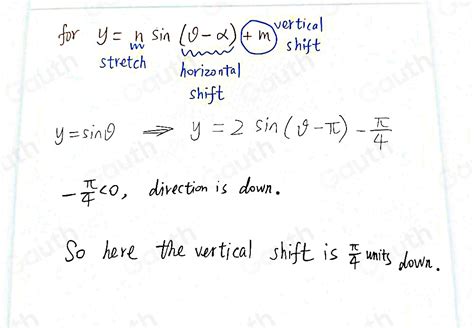 for y = n sin (θ - α) + m vertical shift
stretch horizontal shift
y = sinθ ⇒ y = 2 sin(θ - π) - π/4
- π/4 < 0, direction is down.
So here the vertical shift is π/4 units down.